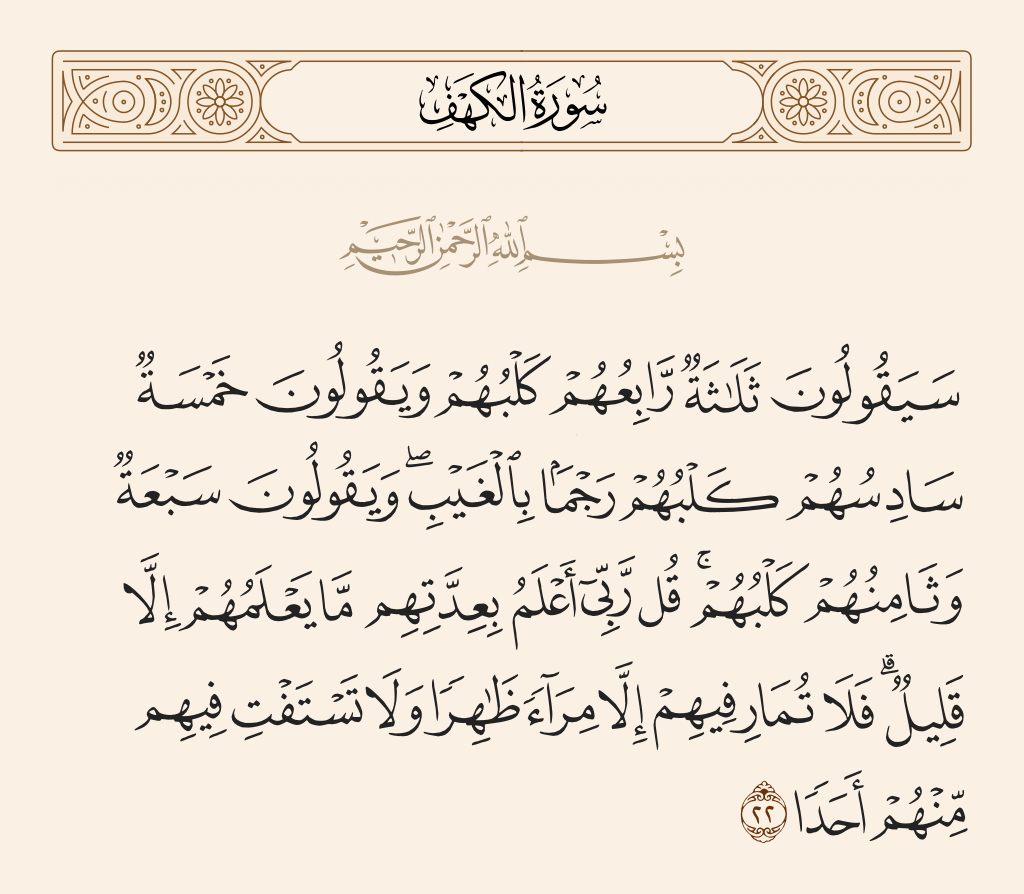 سُورَةُ الكَهۡفِ
بِسۡمِ ٱللَّهِ ٱلرَّحۡمَٰنِ ٱلرَّحِيمِ
سَيَقُولُونَ ثَلَٰثَةٞ رَّابِعُهُمۡ كَلۡبُهُمۡ وَيَقُولُونَ خَمۡسَةٞ
سَادِسُهُمۡ كَلۡبُهُمۡ رَجۡمَۢا بِٱلۡغَيۡبِۖ وَيَقُولُونَ سَبۡعَةٞ
وَثَامِنُهُمۡ كَلۡبُهُمۡۚ قُل رَّبِّيٓ أَعۡلَمُ بِعِدَّتِهِم مَّا يَعۡلَمُهُمۡ إِلَّا
قَلِيلٞۗ فَلَا تُمَارِ فِيهِمۡ إِلَّا مِرَآءٗ ظَٰهِرٗا وَلَا تَسۡتَفۡتِ فِيهِم
مِّنۡهُمۡ أَحَدٗا ٢٢